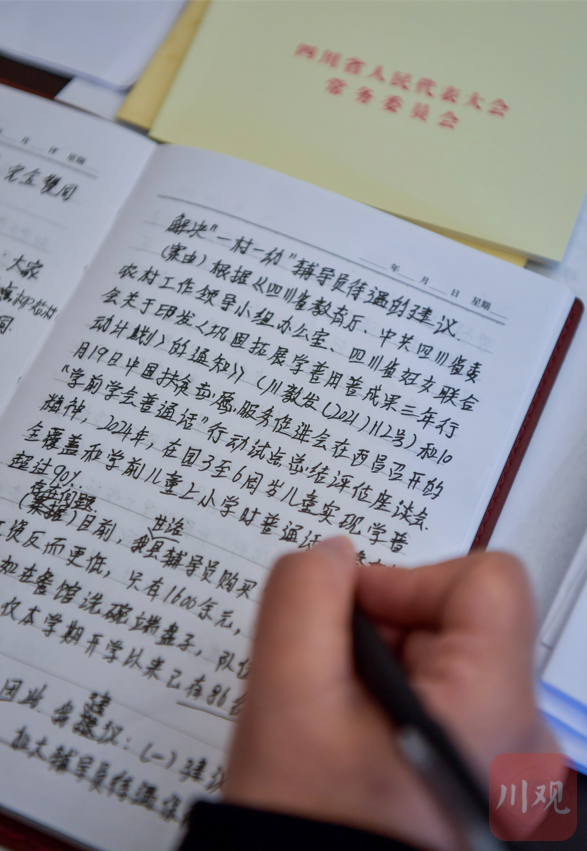 四川省人民代表大会
常务委员会
年 月 日 星期
完全赞同
大家
年 月 日 星期
解决“一村一幼”辅导员待遇的建议.
(案由)根据《四川省教育厅、中共四川省委
农村工作领导小组办公室、四川省妇女联合
会关于印发〈巩固拓展学普用普成果三年行
动计划〉的通知》(川教发〔2021〕12号)和10
月19日中国扶贫志愿服务促进会在西昌召开的
“学前学会普通话”行动试点总结评估座谈会
精神,2024年,在园3至6周岁儿童实现学普
全覆盖和学前儿童上小学时普通话
超过90%
存在问题
(案据)目前,我县辅导员购买
工资反而更低,只有1600余元,
如在餐馆洗碗端盘子,队伍
仅本学期开学以来已有86
因此 建议:(一)建议
加大辅导员待遇保
川观